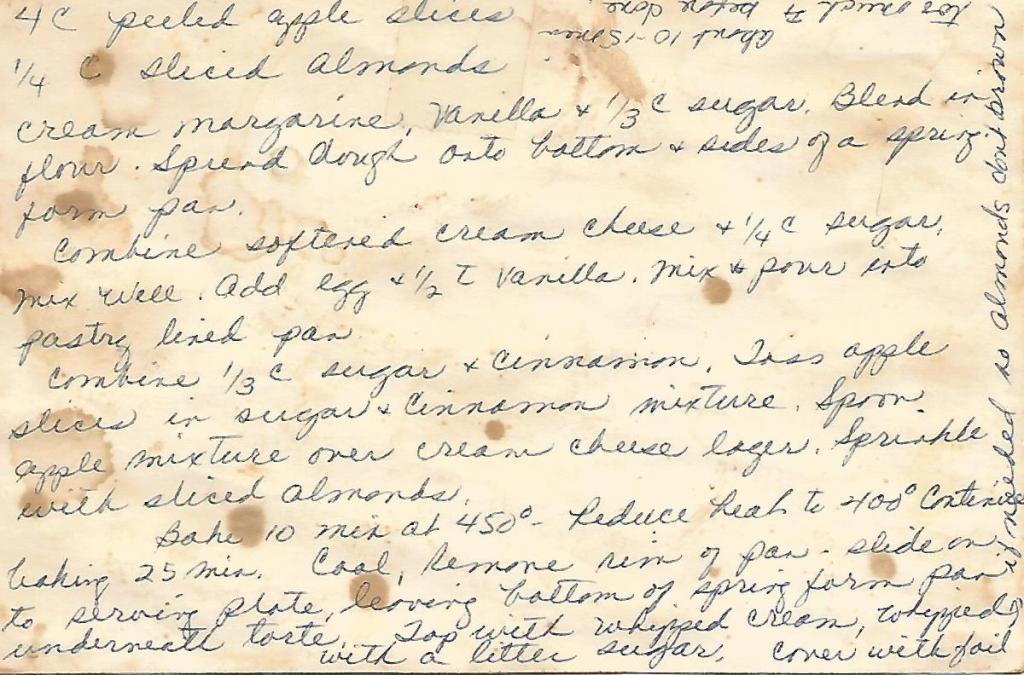 4 C peeled apple slices
1/4 C sliced almonds
cream margarine, Vanilla & 1/3 C sugar. Blend in
flour. Spread dough onto bottom & sides of a spring
form pan.
Combine softened cream cheese & 1/4 C sugar,
mix well. Add egg & 1/2 t Vanilla. Mix & pour into
pastry lined pan
Combine 1/3 C sugar & Cinnamon. Toss apple
slices in sugar & Cinnamon mixture. Spoon
apple mixture over cream cheese layer. Sprinkle
with sliced almonds.
Bake 10 min at 450° - Reduce heat to 400° Continue
baking 25 min. Cool, Remove rim of pan - slide on
to serving plate, leaving bottom of spring form pan
underneath torte. Top with whipped cream, whipped
with a little sugar. Cover with foil
if needed so almonds don't brown
too much before done.
about 10-15 min